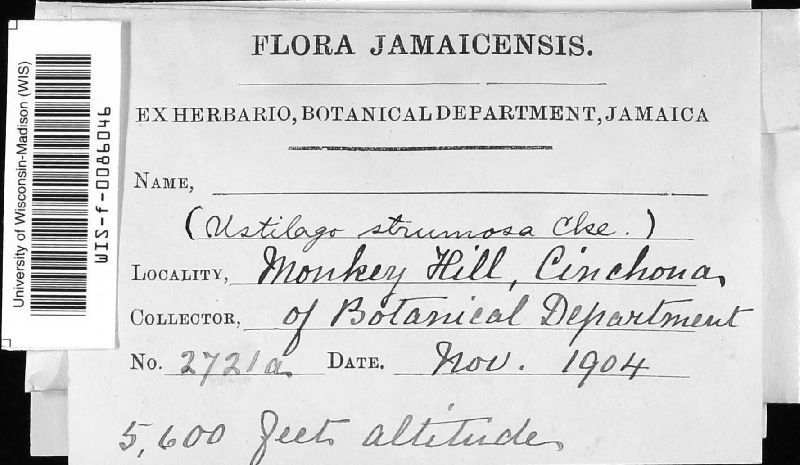 FLORA JAMAICENSIS.
EX HERBARIO, BOTANICAL DEPARTMENT, JAMAICA
NAME,
(Ustilago strumosa Cke.)
LOCALITY, Monkey Hill, Cinchona,
COLLECTOR, of Botanical Department
No. 2721a DATE. Nov. 1904
5,600 feet altitude
University of Wisconsin-Madison (WIS)
WIS-f-0086046